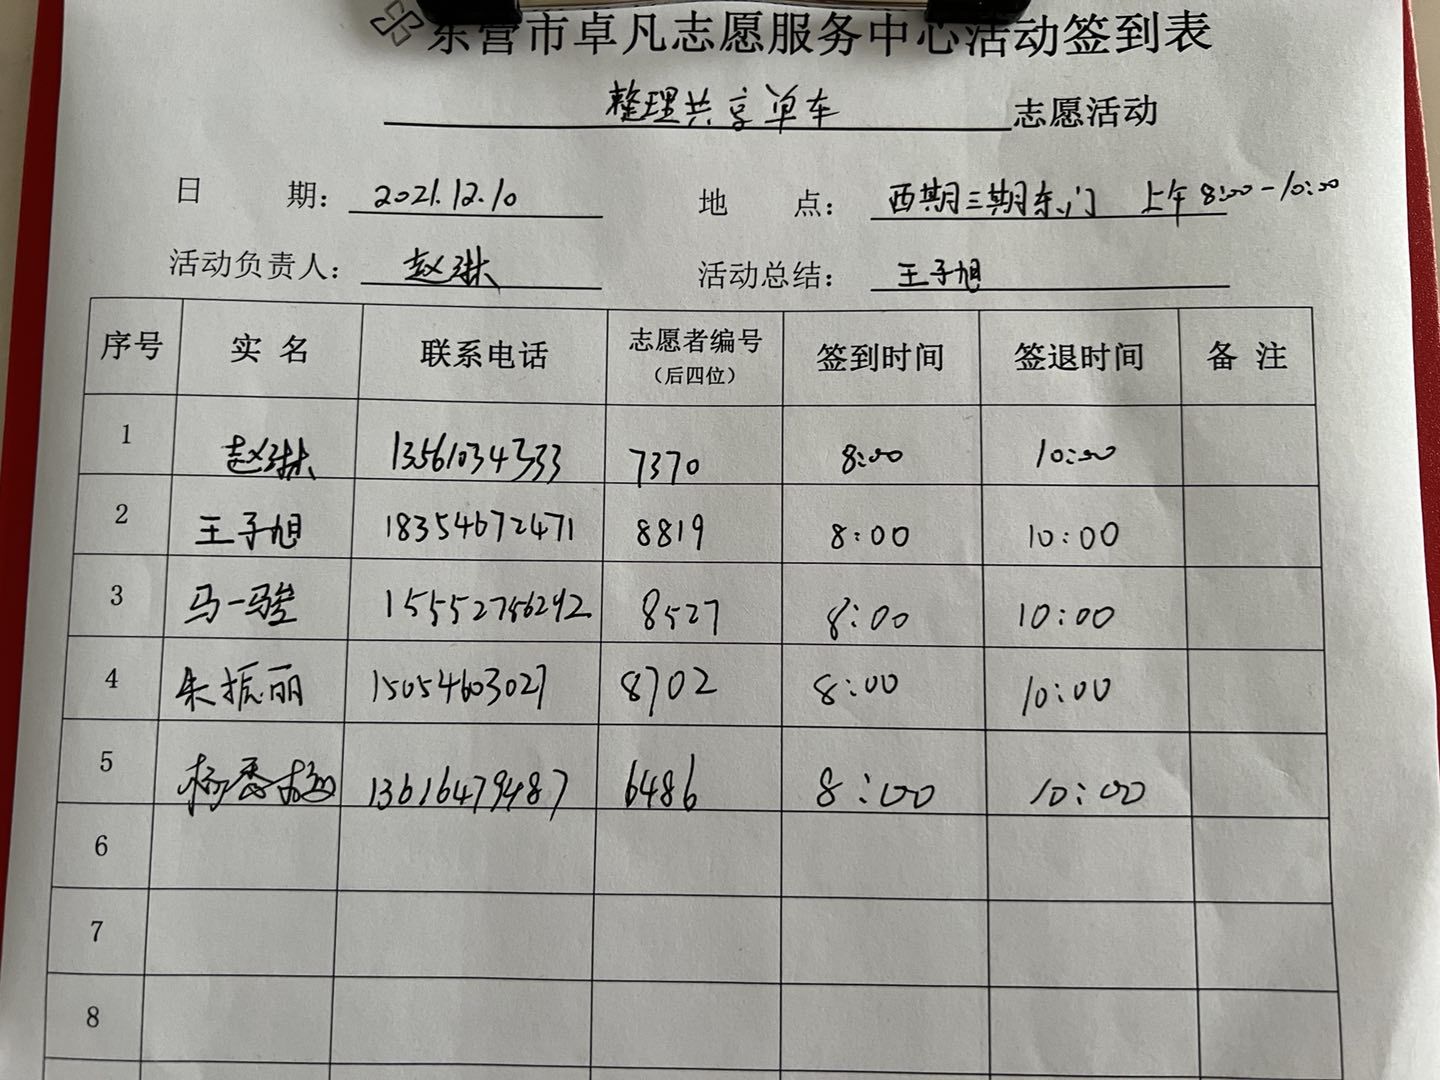 东营市卓凡志愿服务中心活动签到表
整理共享单车 志愿活动
日 期： 2021.12.10 地 点： 西期三期东门 上午 8:00-10:00
活动负责人： 赵琳 活动总结： 王子旭
序号 实名 联系电话 志愿者编号（后四位） 签到时间 签退时间 备注
1 赵琳 13561034333 7370 8:00 10:00
2 王子旭 18354672471 8819 8:00 10:00
3 马一骏 15552756292 8527 8:00 10:00
4 朱振丽 15054603027 8702 8:00 10:00
5 杨香梅 13616479487 6486 8:00 10:00
6
7
8